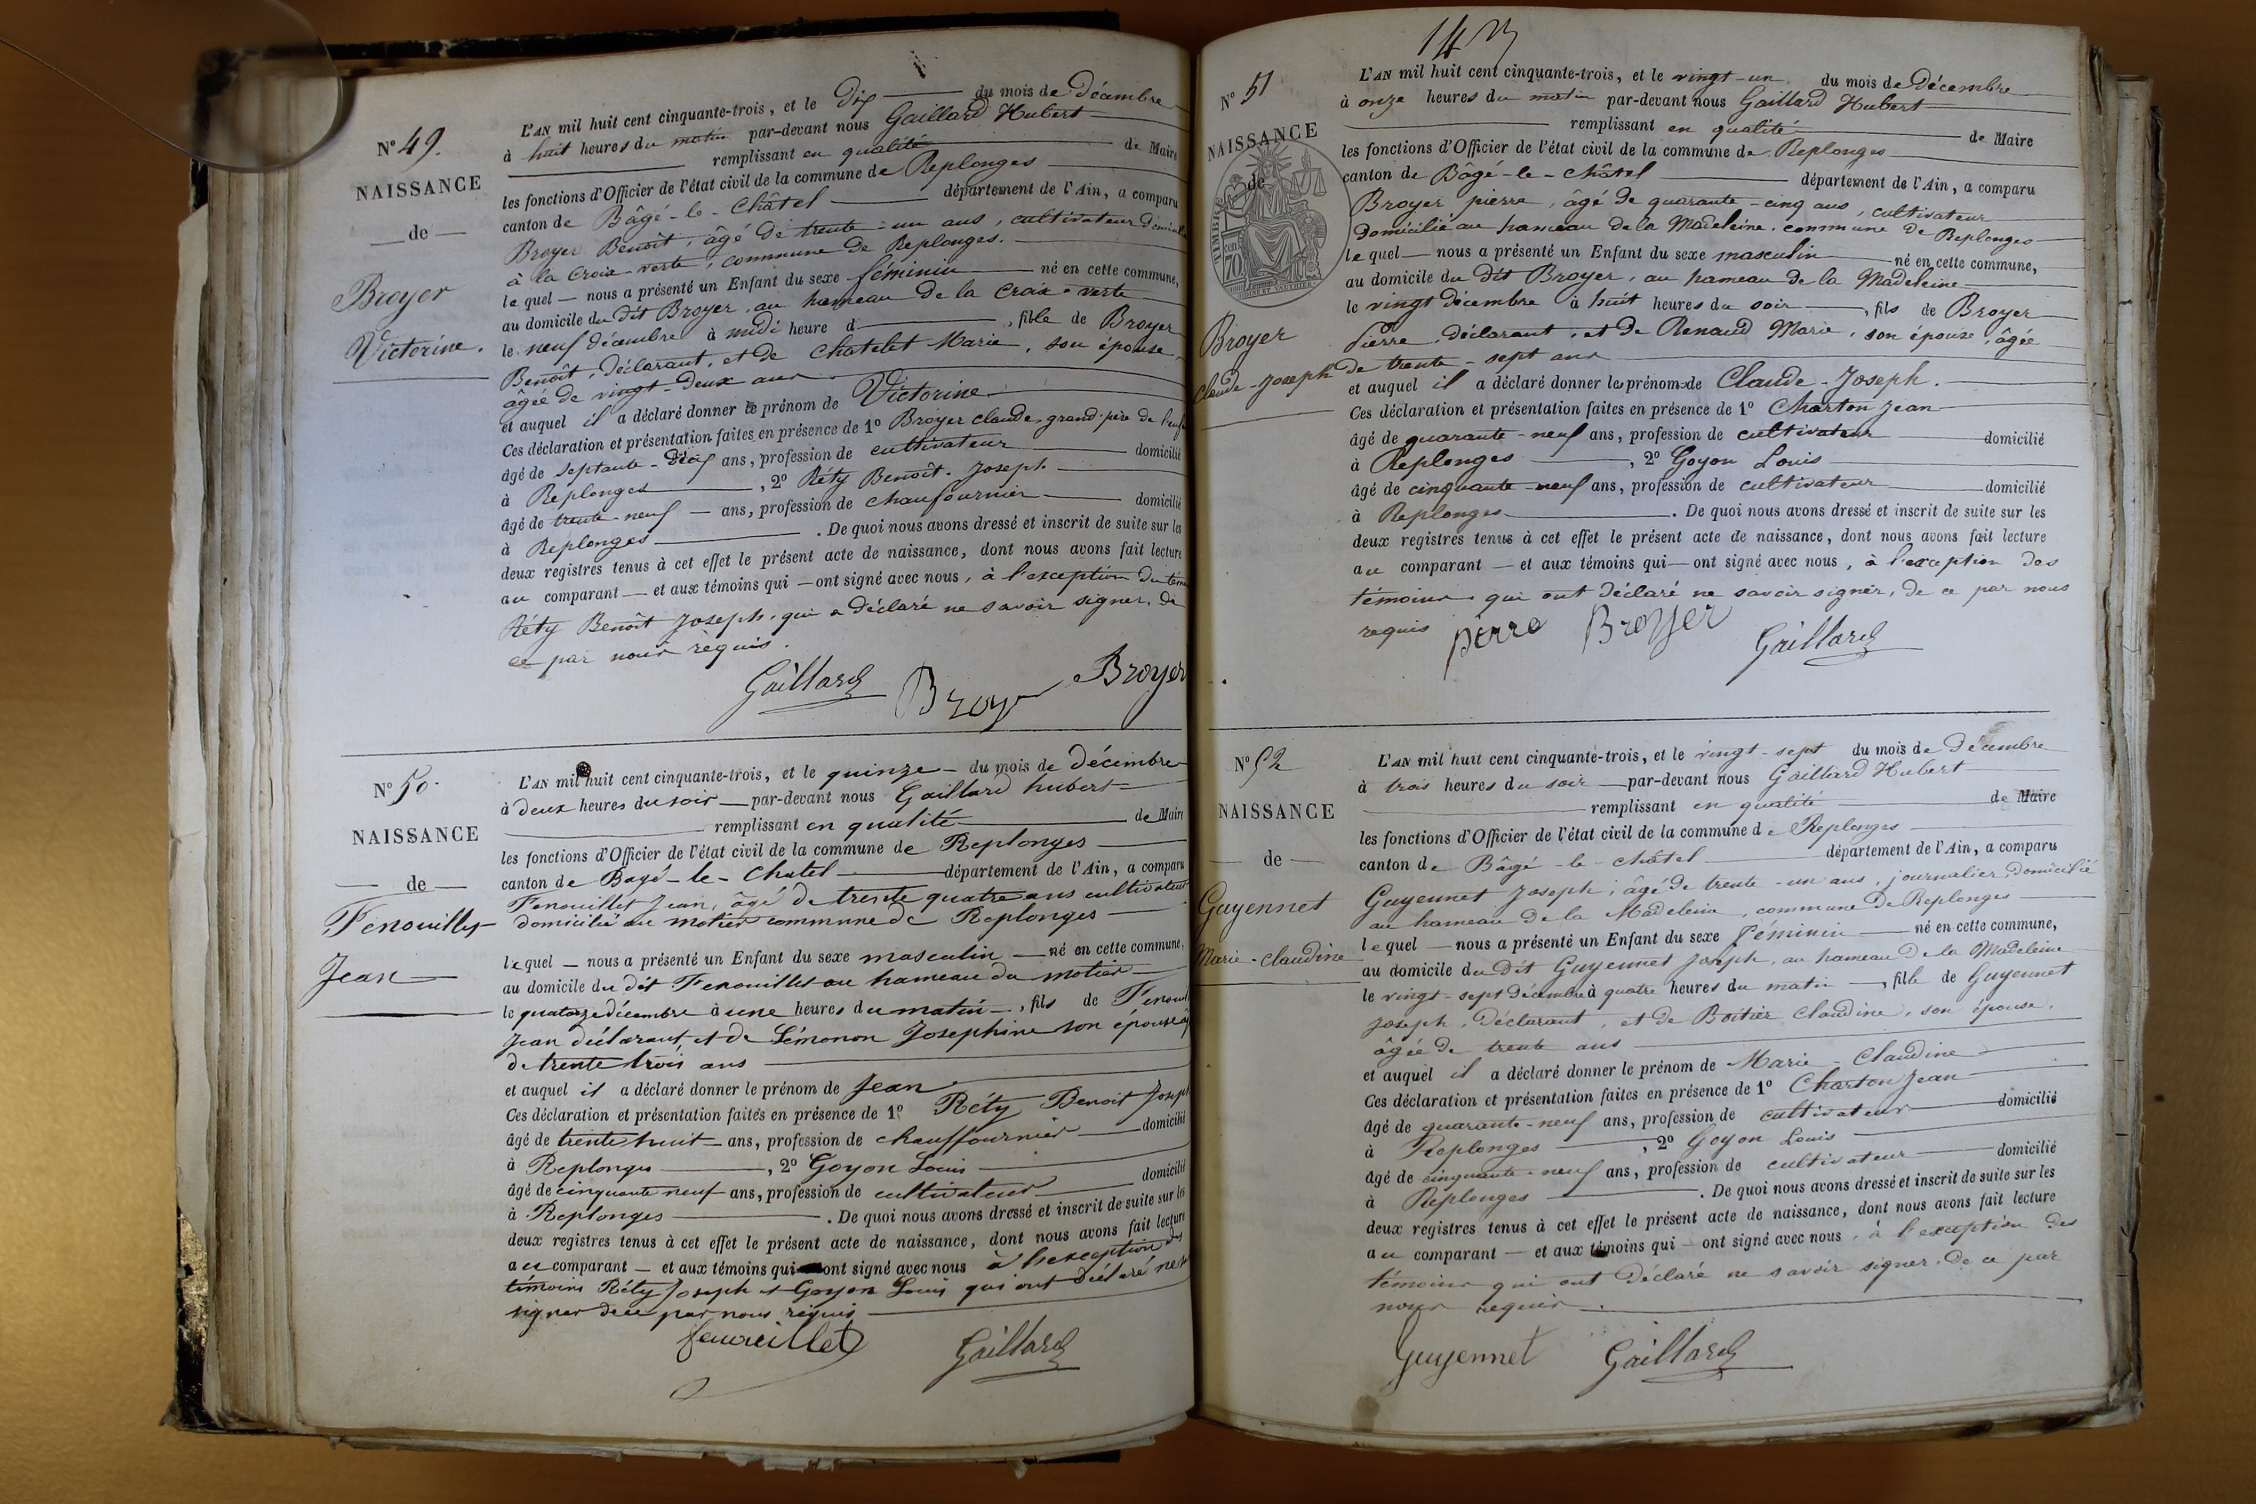 N° 49.
NAISSANCE
de
Broyer
Victorine.
L'AN mil huit cent cinquante-trois, et le dix du mois de Décembre
à huit heures du matin par-devant nous Gaillard Hubert
remplissant en qualité de Maire
les fonctions d'Officier de l'état civil de la commune de Replonges
canton de Bâgé-le-Châtel département de l'Ain, a comparu
Broyer Benoît, âgé de trente-un ans, cultivateur
à la Croix-verte, commune de Replonges.
le quel nous a présenté un Enfant du sexe féminin né en cette commune,
au domicile du dit Broyer, au hameau de la Croix-verte
le neuf décembre à midi heure d , fille de Broyer
Benoît, déclarant, et de Chatelet Marie, son épouse,
âgée de vingt-deux ans
et auquel il a déclaré donner le prénom de Victorine
Ces déclaration et présentation faites en présence de 1° Broyer claude, grand-père de
âgé de septante ans, profession de cultivateur domicilié
à Replonges , 2° Réty Benoît-Joseph
âgé de trente-neuf ans, profession de chaufournier domicilié
à Replonges . De quoi nous avons dressé et inscrit de suite sur les
deux registres tenus à cet effet le présent acte de naissance, dont nous avons fait lecture
au comparant et aux témoins qui ont signé avec nous, à l'exception du
Réty Benoît Joseph, qui a déclaré ne savoir signer, de
ce par nous requis.
Gaillard Broyer
N° 50
NAISSANCE
de
Fenouillet
Jean
L'AN mil huit cent cinquante-trois, et le quinze du mois de décembre
à deux heures du soir par-devant nous Gaillard hubert
remplissant en qualité de Maire
les fonctions d'Officier de l'état civil de la commune de Replonges
canton de Bagé-le-Chatel département de l'Ain, a comparu
Fenouillet Jean, âgé de trente quatre ans cultivateur
domicilié au motier commune de Replonges
le quel nous a présenté un Enfant du sexe masculin né en cette commune,
au domicile du dit Fenouillet au hameau du motier
le quatorze décembre à une heures du matin, fils de
Jean déclarant et de Lémonon Josephine son épouse
de trente trois ans
et auquel il a déclaré donner le prénom de Jean
Ces déclaration et présentation faites en présence de 1° Réty Benoit Joseph
âgé de trente huit ans, profession de chauffournier domicilié
à Replonges , 2° Goyon Louis
âgé de cinquante neuf ans, profession de cultivateur domicilié
à Replonges . De quoi nous avons dressé et inscrit de suite sur les
deux registres tenus à cet effet le présent acte de naissance, dont nous avons fait lecture
au comparant et aux témoins qui ont signé avec nous à l'exception
témoins Réty Joseph et Goyon Louis qui ont déclaré ne
signer de ce par nous réquis
fenouillet Gaillard
N° 51
NAISSANCE
de
Broyer
Claude-Joseph
L'AN mil huit cent cinquante-trois, et le vingt-un du mois de Décembre
à onze heures du matin par-devant nous Gaillard Hubert
remplissant en qualité de Maire
les fonctions d'Officier de l'état civil de la commune de Replonges
canton de Bâgé-le-Châtel département de l'Ain, a comparu
Broyer pierre, âgé de quarante-cinq ans, cultivateur
domicilié au hameau de la Madeleine, commune de Replonges
le quel nous a présenté un Enfant du sexe masculin né en cette commune,
au domicile du dit Broyer, au hameau de la Madeleine
le vingt décembre à huit heures du soir , fils de Broyer
Pierre, déclarant, et de Renaud Marie, son épouse, âgée
de trente-sept ans
et auquel il a déclaré donner les prénoms de Claude-Joseph.
Ces déclaration et présentation faites en présence de 1° Charton Jean
âgé de quarante-neuf ans, profession de cultivateur domicilié
à Replonges , 2° Goyon Louis
âgé de cinquante-neuf ans, profession de cultivateur domicilié
à Replonges . De quoi nous avons dressé et inscrit de suite sur les
deux registres tenus à cet effet le présent acte de naissance, dont nous avons fait lecture
au comparant et aux témoins qui ont signé avec nous, à l'exception des
témoins qui ont déclaré ne savoir signer, de ce par nous
requis
pierre Broyer Gaillard
N° 52
NAISSANCE
de
Guyennet
Marie-claudine
L'AN mil huit cent cinquante-trois, et le vingt-sept du mois de Décembre
à trois heures du soir par-devant nous Gaillard Hubert
remplissant en qualité de Maire
les fonctions d'Officier de l'état civil de la commune de Replonges
canton de Bâgé-le-châtel département de l'Ain, a comparu
Guyennet Joseph, âgé de trente-un ans, journalier, domicilié
au hameau de la Madeleine, commune de Replonges
le quel nous a présenté un Enfant du sexe féminin né en cette commune,
au domicile du dit Guyennet Joseph, au hameau de la Madeleine
le vingt-sept Décembre à quatre heures du matin , fille de Guyennet
Joseph, Déclarant, et de Boitier Claudine, son épouse,
âgée de trente ans
et auquel il a déclaré donner le prénom de Marie-Claudine
Ces déclaration et présentation faites en présence de 1° Charton Jean
âgé de quarante-neuf ans, profession de cultivateur domicilié
à Replonges , 2° Goyon Louis
âgé de cinquante-neuf ans, profession de cultivateur domicilié
à Replonges . De quoi nous avons dressé et inscrit de suite sur les
deux registres tenus à cet effet le présent acte de naissance, dont nous avons fait lecture
au comparant et aux témoins qui ont signé avec nous, à l'exception des
témoins qui ont déclaré ne savoir signer, de ce par
nous requis.
Guyennet Gaillard